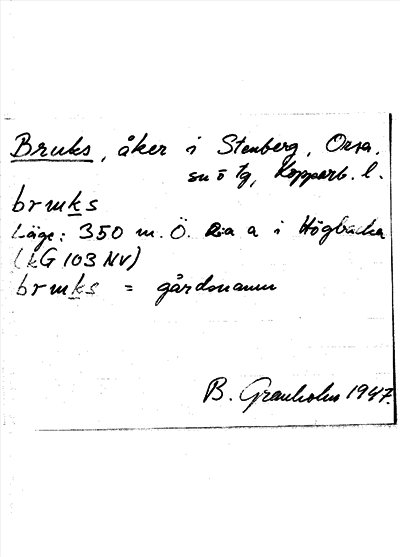 Bruks, åker i Stenberg, Orsa,
sn o tg, Kopparb. l.
bruks
Läge: 350 m. Ö. a i Högbacka
(kG 103 NV)
bruks = gårdsnamn
B. Granholm 1947.